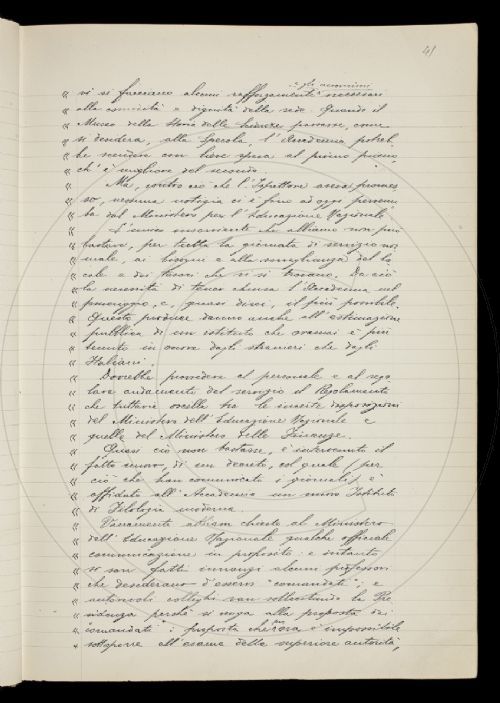 41
e gli accenni
« vi si facessero alcuni rafforzamenti necessari
« alla comodità e dignità della sede. Quando il
« Museo della Storia delle Scienze passasse, come
« si desidera, alla Specola, l'Accademia potreb
« be scendere con lieve spesa al primo piano
« ch'è migliore del secondo.
« Ma, contro ciò che l'Ispettore aveva promes
« so, nessuna notizia ci è fino ad oggi pervenu
« ta dal Ministero per l'Educazione Nazionale.
« L'unico inserviente che abbiamo non può
« bastare, per tutta la giornata di servizio nor
« male, ai bisogni e alla sorveglianza del lo
« cale e dei tesori che vi si trovano. Da ciò
« la necessità di tener chiusa l'Accademia nel
« pomeriggio, e, quasi direi, il più possibile.
« Questo produce danno anche all'estimazione
« pubblica di un istituto che oramai è più
« tenuto in onore dagli stranieri che dagli
« Italiani.
« Dovrebbe provvedere al personale e al rego
« lare andamento del servizio il Regolamento
« che tuttavia oscilla tra le incerte disposizioni
« del Ministero dell'Educazione Nazionale e
« quelle del Ministero delle Finanze.
« Quasi ciò non bastasse, è intervenuto il
« fatto nuovo, di un decreto, col quale (per
« ciò che han comunicato i giornali) è
« affidato all'Accademia un nuovo Istituto
« di Filologia moderna.
« Vanamente abbiam chiesto al Ministero
« dell'Educazione Nazionale qualche officiale
« comunicazione in proposito: e intanto
« si son fatti innanzi alcuni professori
« che desiderano d'esservi "comandati"; e
« autorevoli colleghi van sollecitando la Pre
« sidenza perché si venga alla proposta dei
« "comandati": proposta che ora è impossibile
« sottoporre all'esame della superiore autorità,